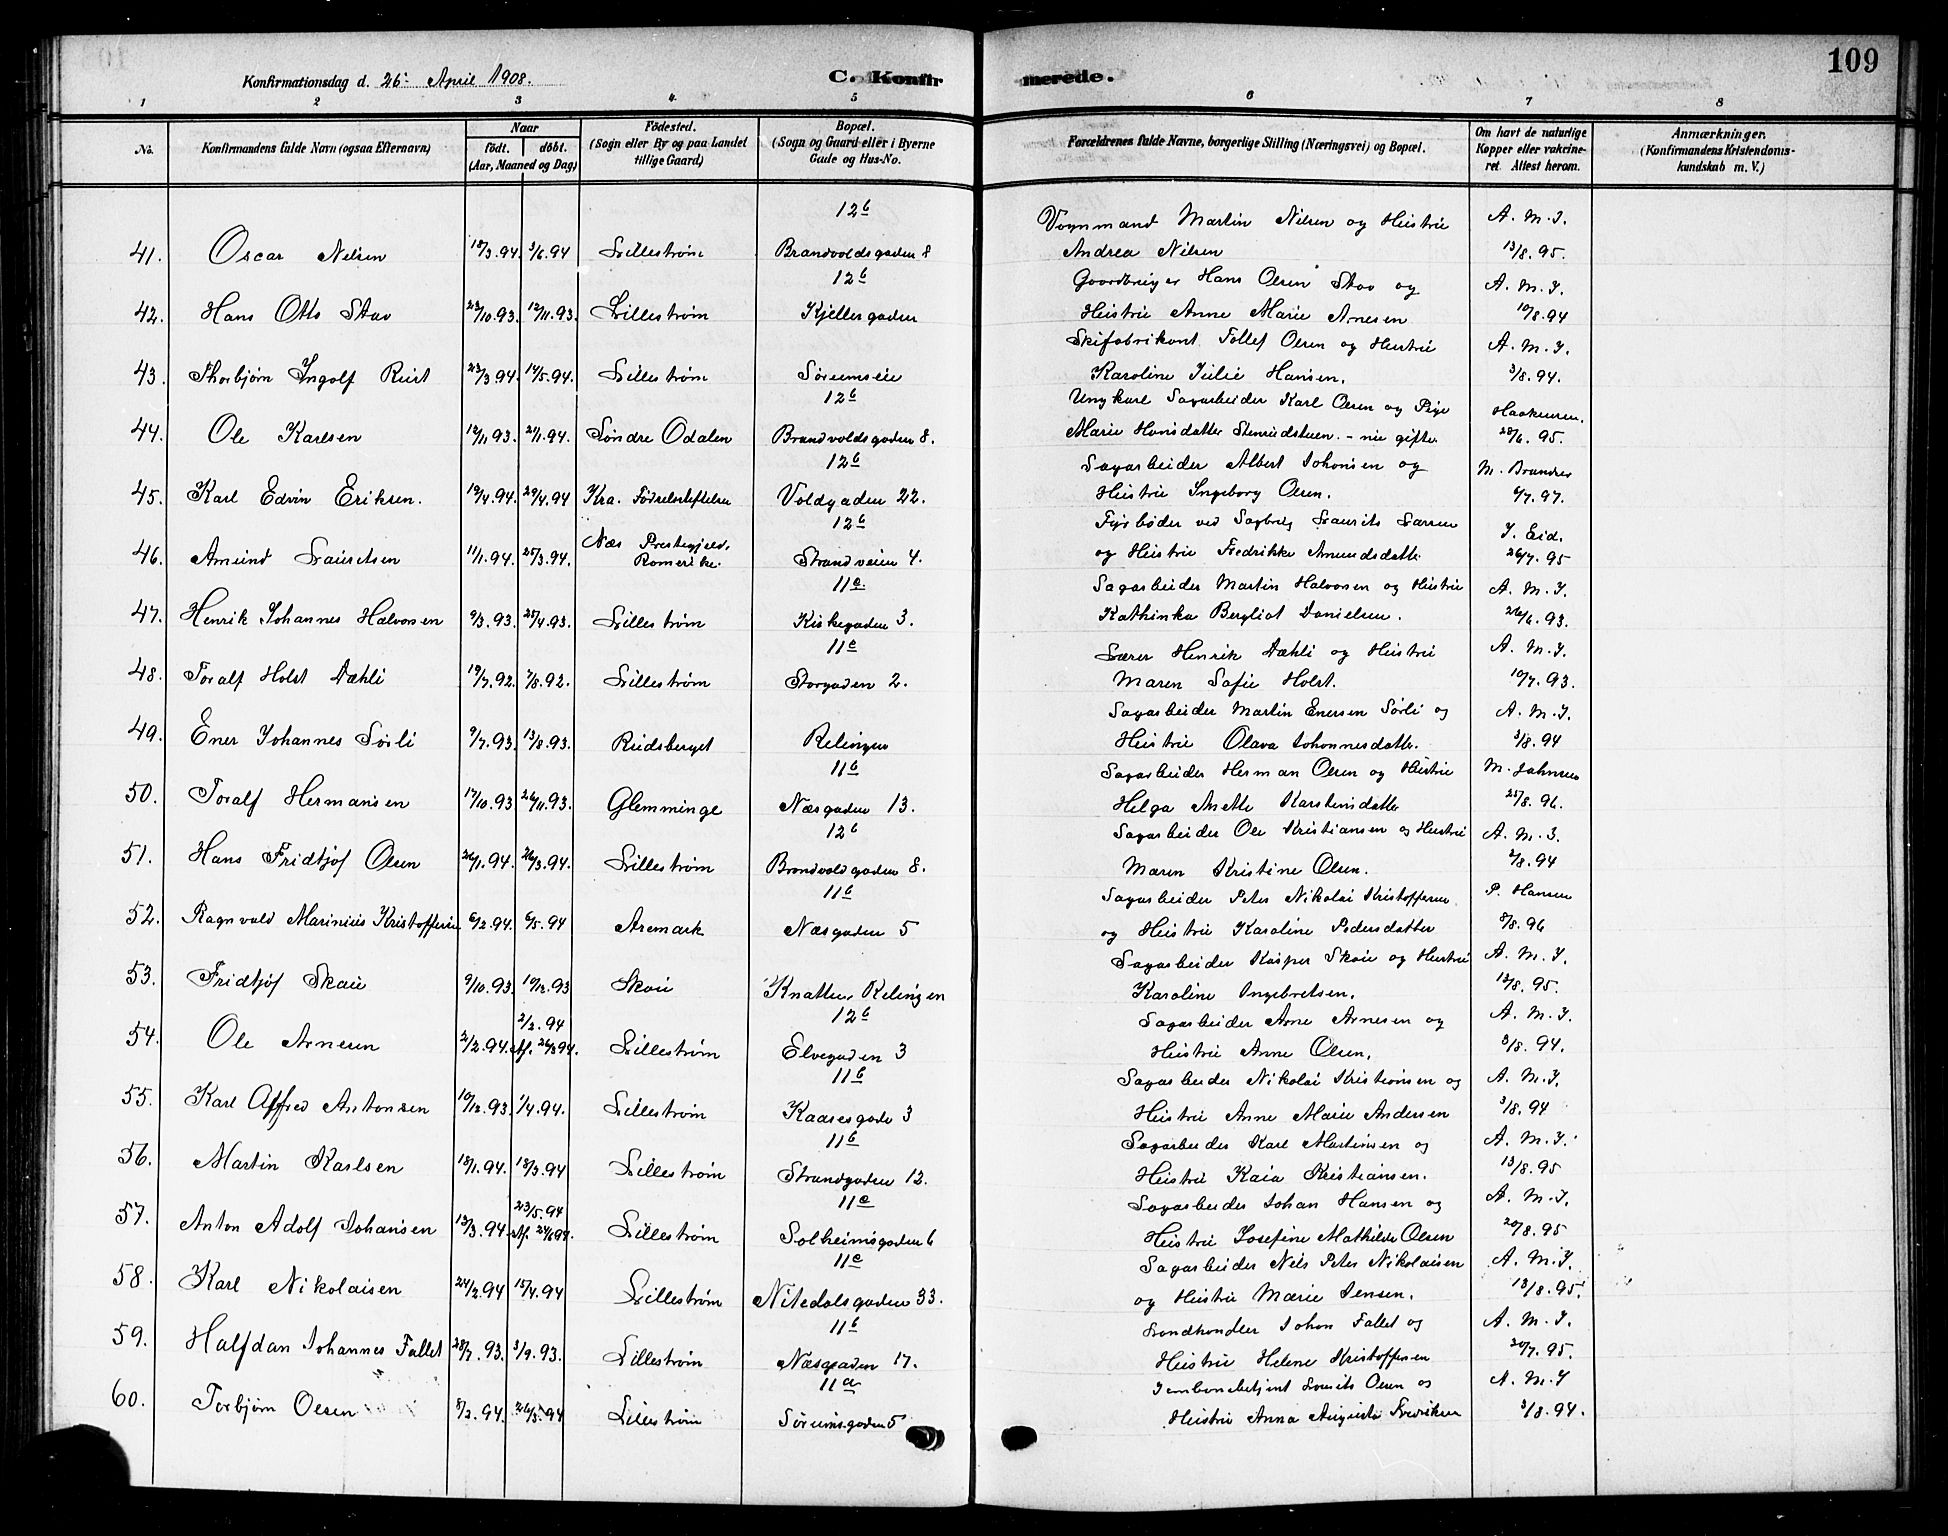 109
Konfirmationsdag d. 26de April 1908. C. Konfirmerede.
1 2 3 4 5 6 7 8
No.
Konfirmandens fulde Navn (ogsaa Efternavn)
Naar
født. døbt.
(Aar, Maaned og Dag)
Fødested.
(Sogn eller By og paa Landet
tillige Gaard)
Bopæl.
(Sogn og Gaard eller i Byerne
Gade og Hus-No.
Forældrenes fulde Navne, borgerlige Stilling (Næringsvei) og Bopæl.
Om havt de naturlige
Kopper eller vakcine-
ret. Attest herom.
Anmærkninger.
(Konfirmandens Kristendoms-
kundskab m. V.)
12 b Vognmand Martin Nilsen og Hustru A. M. I.
41. Oscar Nilsen 18/3.94 3/6.94 Lillestrøm Brandvoldsgaden 8 Andrea Nilsen 13/8.95.
12 b Gaardbruger Hans Olsen Stav og A. M. I.
42. Hans Otto Stav 22/10.93. 12/11.93. Lillestrøm Kjellergaden Hustru Anne Marie Arnesen 10/8.94
Skifabrikant Tollef Olsen og Hustru A. M. I.
43. Thorbjørn Ingolf Rust 23/3.94. 14/5.94. Lillestrøm Sørumseie Karoline Julie Hansen. 3/8.94.
12 b Ungkarl Sagarbeider Karl Olsen og Pige Haakensen.
44. Ole Karlsen 12/11.93. 21/1.94. Søndre Odalen Brandvoldsgaden 8. Marie Hansdatter Stenrudstuen. - nu gifte. 28/6.95.
12 b Sagarbeider Albert Johansen og M. Brandrer
45. Karl Edvin Eriksen. 19/4.94. 29/4.94 Kra. Fødselsstiftelse Voldgaden 22. Hustru Ingeborg Olsen. 6/7.97.
12 b Fyrbøder ved Sagbrug Laurits Larsen J. Eid.
46. Amund Lauritsen 11/1.94. 25/3.94. Næs Prestegjeld, Romerike. Strandveien 4. og Hustru Fredrikke Amundsdatter 26/7.95
11 c Sagarbeider Martin Halvorsen og Hustru A. M. I.
47. Henrik Johannes Halvorsen 9/3.93. 25/4.93. Lillestrøm Kirkegaden 3. Kathinka Bergliot Danielsen. 26/6.93.
11 c Lærer Henrik Dæhli og Hustru A. M. I.
48. Toralf Holst Dæhli 19/7.92. 7/8.92. Lillestrøm Storgaden 2. Maren Sofie Holst. 10/7.93.
Sagarbeider Martin Enersen Sørli og A. M. I.
49. Ener Johannes Sørli 9/7.93. 13/8.93. Rudsberget Relingen Hustru Olava Johannesdatter. 3/8.94
11 b Sagarbeider Herman Olsen og Hustru M. Johnsen
50. Toralf Hermansen 17/10.93 26/11.93. Glemminge Næsgaden 13. Helga Anette Karstensdatter 25/8.96.
12 b Sagarbeider Ole Kristiansen og Hustru A. M. I.
51. Hans Fridtjof Olsen 26/1.94. 26/3.94. Lillestrøm Brandvoldsgaden 8. Maren Kristine Olsen. 2/8.94
11 b Sagarbeider Peter Nikolai Kristoffersen P. Hansen
52. Ragnvald Marinius Kristoffersen 6/2.94. 6/5.94 Aremark Næsgaden 5 og Hustru Karoline Pedersdatter 8/8.96
Sagarbeider Kasper Skau og Hustru A. M. I.
53. Fridtjof Skau 9/10.93. 10/12.93 Skau Knatten, Relingen Karoline Ingebretsen. 12/8.95.
2/2.94 12 b Sagarbeider Arne Arnesen og A. M. I.
54. Ole Arnesen 2/2.94. Af. 26/3 94. Lillestrøm Elvegaden 3 Hustru Anne Olsen. 3/8.94.
11 b Sagarbeider Nikolai Kristiansen og A. M. I.
55. Karl Alfred Antonsen 10/12.93. 1/4.94. Lillestrøm Kaaresgade 3 Hustru Anne Marie Andersen 3/8.94
11 b Sagarbeider Karl Martinsen og A. M. I.
56. Martin Karlsen 18/1.94. 18/3.94 Lillestrøm Strandgaden 12. Hustru Kaia Kristiansen. 13/8.95
23/5.94 11 c Sagarbeider Johan Hansen og A. M. I.
57. Anton Adolf Johansen 13/3.94. Af. 24/6 94. Lillestrøm Solheimsgaden 6 Hustru Josefine Mathilde Olsen 20/8.95
11 c Sagarbeider Nils Peter Nikolaisen A. M. I.
58. Karl Nikolaisen 24/2.94 15/4.94 Lillestrøm Nitedalsgaden 33. og Hustru Marie Jensen. 13/8.95.
11 b Landhandler Johan Fallet og A. M. I.
59. Halfdan Johannes Fallet 28/7.93. 3/9.93. Lillestrøm Næsgaden 17. Hustru Helene Kristoffersen 20/7.95.
11 a Jernbanebetjent Laurits Olsen og A. M. I
60. Torbjørn Olsen 8/2.94. 26/3.94 Lillestrøm Sørumsgaden 5 Hustru Anna Augusta Fredriksen 3/8.94.